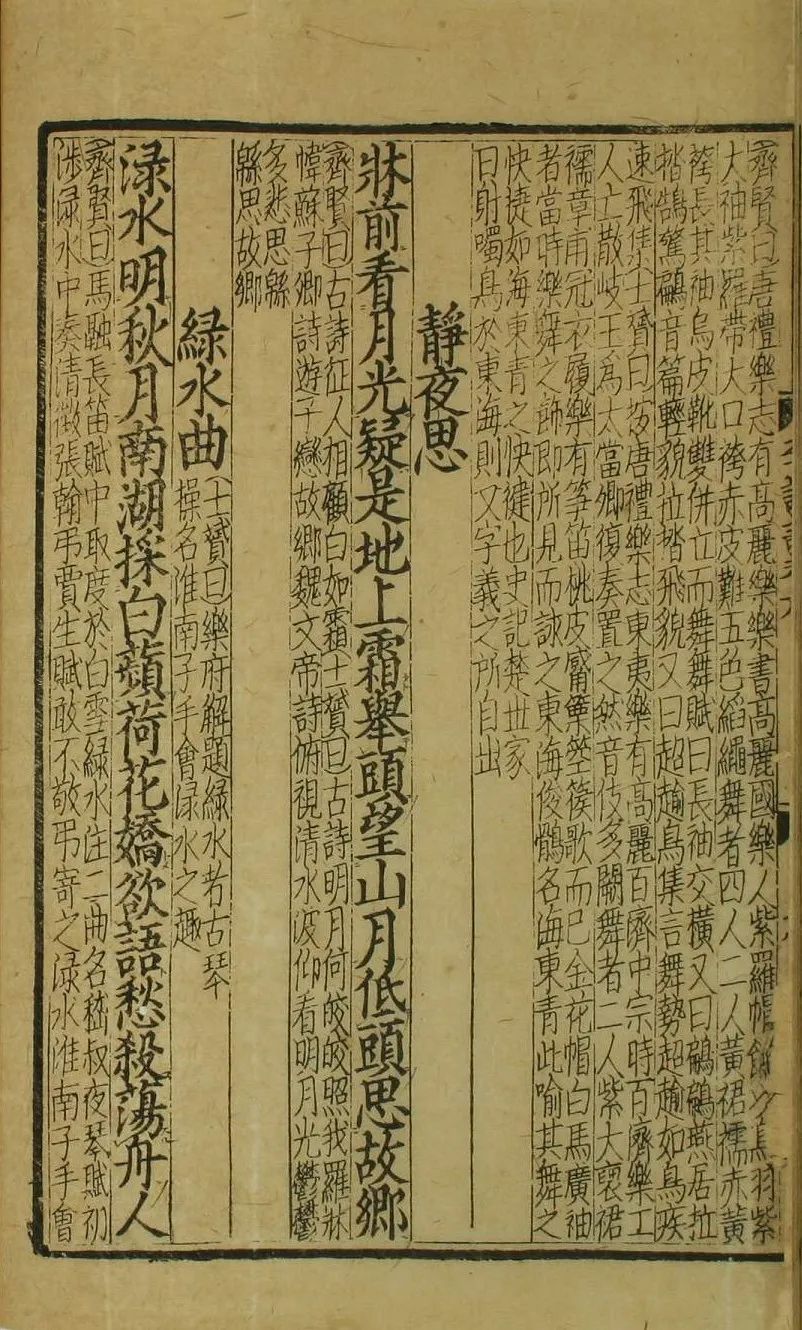 齊賢曰唐禮樂志有高麗樂樂書高麗國樂人紫羅帽飾以鳥羽紫
大袖紫羅帶大口袴赤皮鞾五色縚繩舞者四人二人黃裙襦赤黃
袴長其袖烏皮靴雙併立而舞舞賦曰長袖交橫又曰鶣燕居拉
㧺鵠驚鶣音篇輕貌拉㧺飛貌又曰超趫鳥集言舞勢超趫如鳥疾
速飛集士贇曰按唐禮樂志東夷樂有高麗百濟中宗時百濟樂工
人亡散岐王為太常卿復奏置之然音伎多闕舞者二人紫大裦裙
襦章甫冠衣履樂有箏笛桃皮觱篥箜篌歌而已金花帽白馬廣袖
者當時樂舞之飾即所見而詠之東海俊鶻名海東青此喻其舞之
快捷如海東青之快健也史記楚世家
曰射噣鳥於東海則又字義之所自出
靜夜思
牀前看月光疑是地上霜舉頭望山月低頭思故鄉
齊賢曰古詩征人相顧白如霜士贇曰古詩明月何皎皎照我羅牀
幃蘇子卿詩遊子戀故鄉魏文帝詩俯視清水波仰看明月光鬱鬱
多悲思緜
緜思故鄉
綠水曲
士贇曰樂府解題綠水者古琴
操名淮南子手會渌水之趣
渌水明秋月南湖採白蘋荷花嬌欲語愁殺蕩舟人
齊賢曰馬融長笛賦中取度於白雪綠水注二曲名嵇叔夜琴賦初
涉渌水中奏清徵張翰弔賈生賦敢不敬弔寄之渌水淮南子手會